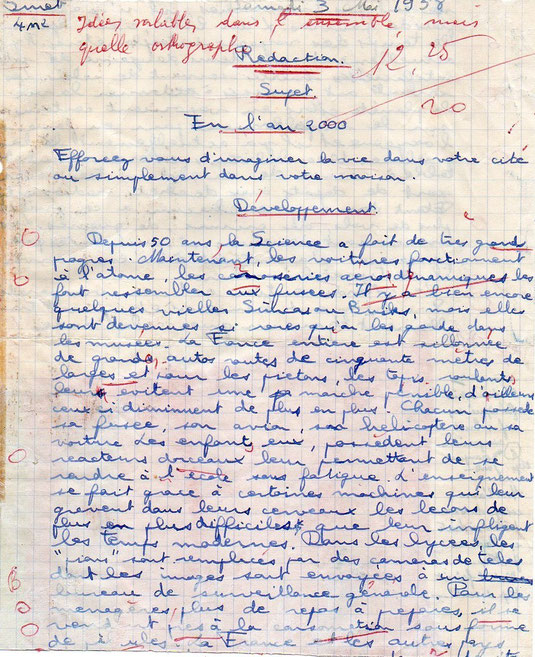 Smet Samedi 3 Mai 1958
4M2 Idées valables dans l'ensemble, mais
quelle orthographe
12,25
20
Rédaction.
Sujet.
En l'an 2000
Efforcez vous d'imaginer la vie dans votre cité
ou simplement dans votre maison.
Développement.
Depuis 50 ans, la Science a fait de très grand
progrès. Maintenant, les voitures fonctionnent
à l'atome, les series aerodynamiques les
font ressembler aux fusées. Il y a bien encore
quelques vielles Simcas ou Buiks, mais elles
sont devenues si rares qu'on les garde dans
les musées. La France entière est sillonnée
de grandes autos routes de cinquante mètres de
larges et pour les pietons, les tapis roulants
leurs évitent une marche pénible, d'ailleurs
ceux ci diminuent de plus en plus. Chacun possède
sa fusée, son avion, son helicoptère ou sa
voiture. Les enfants, eux, possèdent leurs
reacteurs dorceaux leur permettent de se
rendre à l'école sans fatigue. L'enseignement
se fait grâce à certaines machines qui leur
gravent dans leurs cerveaux les lecons de
plus en plus difficiles, que leur infligent
les temps modernes. Dans les lycées, les
"pions" sont remplacés par des cameras de télé
dont les images sont envoyées à un
bureau de surveillance générale. Pour les
menagères, plus de repas à préparer, il se
vendent prêts à la consomation sous forme
de pilules. La France et les autres pays